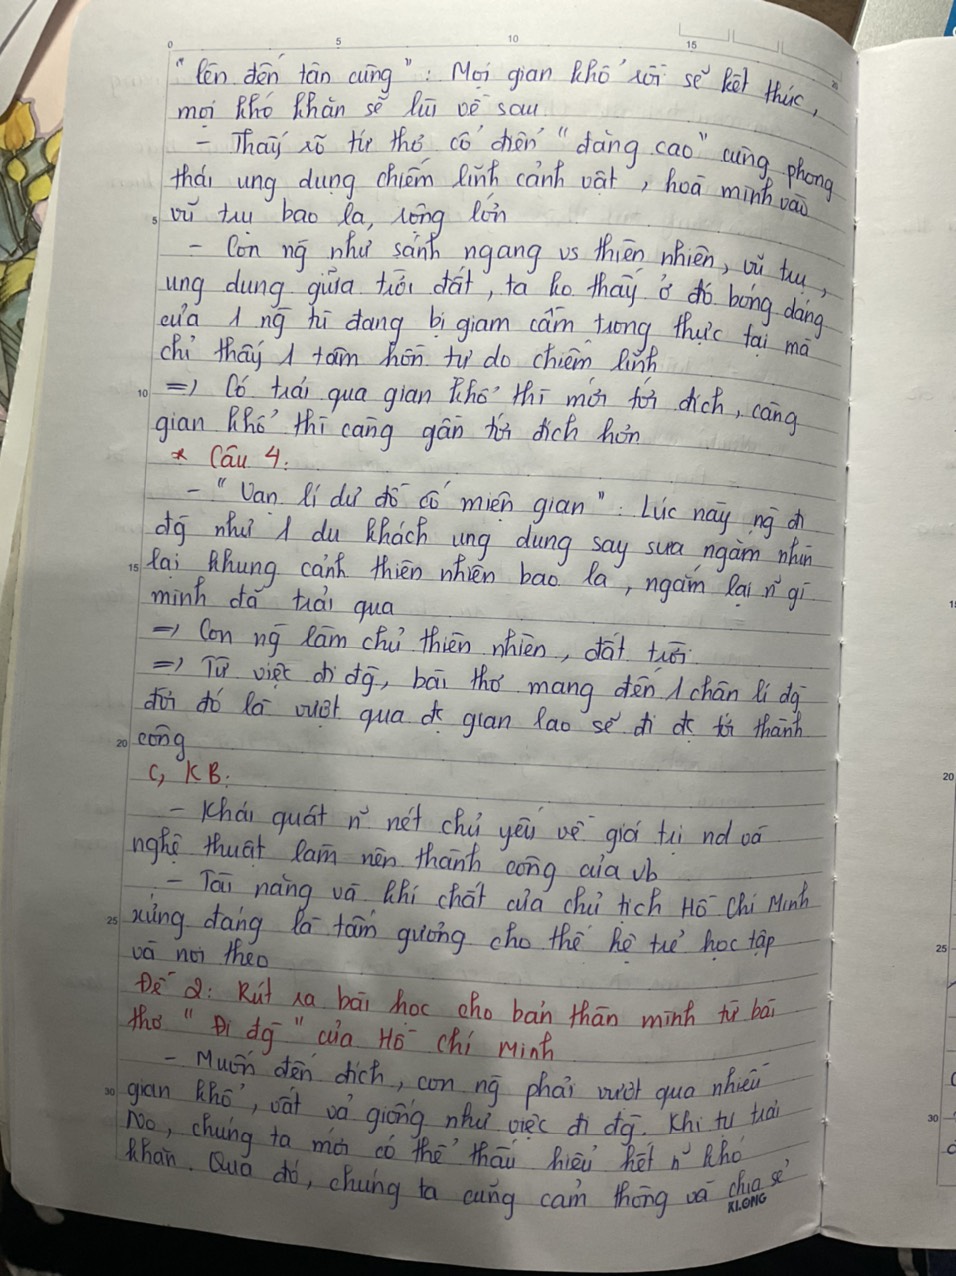 0 5 10 15 20
"lên đến tận cùng": Mọi gian khổ rồi sẽ kết thúc,
mọi khó khăn sẽ lùi về sau
- Thấy rõ tư thế cổ điển "đăng cao" cùng phong
thái ung dung chiếm lĩnh cảnh vật, hoà mình vào
5 vũ trụ bao la, rộng lớn
- Con ng̃ như sánh ngang vs thiên nhiên, vũ trụ,
ung dung giữa trời đất, ta ko thấy ở đó bóng dáng
của 1 ng̃ tù đang bị giam cầm trong thực tại mà
chỉ thấy 1 tâm hồn tự do chiếm lĩnh
10 => Có trải qua gian khổ thì mới tới đích, càng
gian khổ thì càng gần tới đích hơn
* Câu 4:
- "Vạn lí dư đồ cố miện gian": Lúc này ng̃ đi
đg̃ như 1 du khách ung dung say sưa ngắm nhìn
15 lại khung cảnh thiên nhiên bao la, ngắm lại n~ gì
mình đã trải qua
=> Con ng̃ làm chủ thiên nhiên, đất trời
=> Từ việc đi đg̃, bài thơ mang đến 1 chân lí đg̃
đời đó là vượt qua đc gian lao sẽ đi đc tới thành
20 công
C, KB:
- Khái quát n~ nét chủ yếu về giá trị nd và
nghệ thuật làm nên thành công của vb
- Tài năng và khí chất của chủ tịch Hồ Chí Minh
25 xứng đáng là tấm gương cho thế hệ trẻ học tập
và noi theo
Đề 2: Rút ra bài học cho bản thân mình từ bài
thơ "Đi đg̃" của Hồ Chí Minh
- Muốn đến đích, con ng̃ phải vượt qua nhiều
30 gian khổ, vất vả giống như việc đi đg̃. Khi tự trải
no, chúng ta mới có thể thấu hiểu hết n~ khó
khăn. Qua đó, chúng ta cũng cảm thông và chia sẻ
KLONG
20
25
30